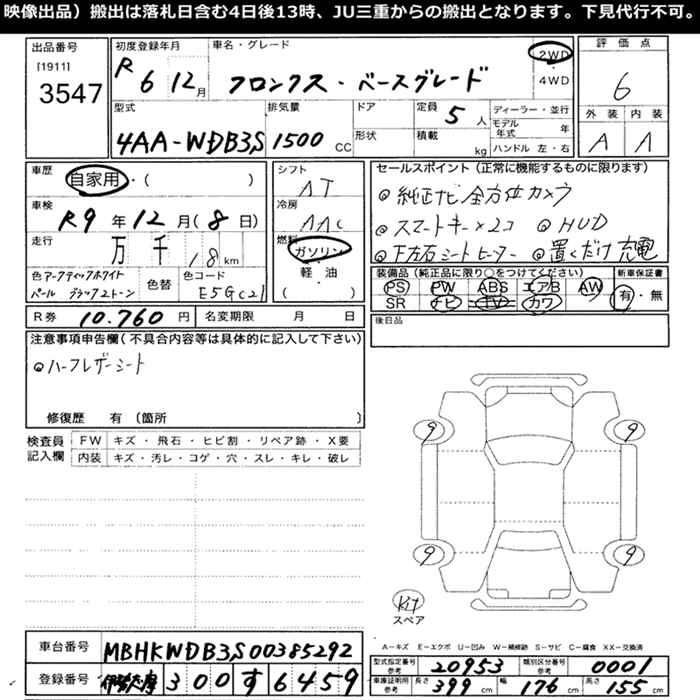 映像出品）搬出は落札日含む4日後13時、JU三重からの搬出となります。下見代行不可。
出品番号 初度登録年月 車名・グレード 評価点
[1911] 3547 R 6 12月 フロンクス・ベースグレード 2WD ・ 4WD 6
型式 排気量 ドア 定員 5人 ディーラー・並行 外装 内装
4AA-WDB3S 1500 CC 形状 積載 kg モデル年式 年 ハンドル 左・右 A A
車歴 自家用・( ) シフト AT セールスポイント（正常に機能するものに限ります）
車検 R9年12月(8日) 冷房 AAC ◎純正ナビ 全方位カメラ
走行 万 千 18km 燃料 ガソリン ◎スマートキー×2コ ◎HUD
軽・油 ( ) ◎下左右シートヒーター ◎置くだけ充電
色 アークティックホワイトパール ブラック2トーン 色替 色コード E5G(2)
装備品（純正品に限り○をつけてください） 新車保証書
PS PW ABS エアB AW 有・無
SR ナビ TV カワ
R券 10.760円 名変期限 月 日 後日品
注意事項申告欄（不具合内容等は具体的に記入して下さい）
◎ハーフレザーシート
修復歴 有（箇所 ）
検査員記入欄 FW キズ・飛石・ヒビ割・リペア跡・X要
内装 キズ・汚レ・コゲ・穴・スレ・キレ・破レ
9 9
9 9
Kit
スペア
A－キズ E－エクボ U－凹み W－補修跡 S－サビ C－腐食 XX－交換済
車台番号 MBHKWDB3S00385292
型式指定番号 参考 20953 類別区分番号 参考 0001
登録番号 300 す 6459
車庫証明用 参考 長さ 399cm 幅 176cm 高さ 155cm